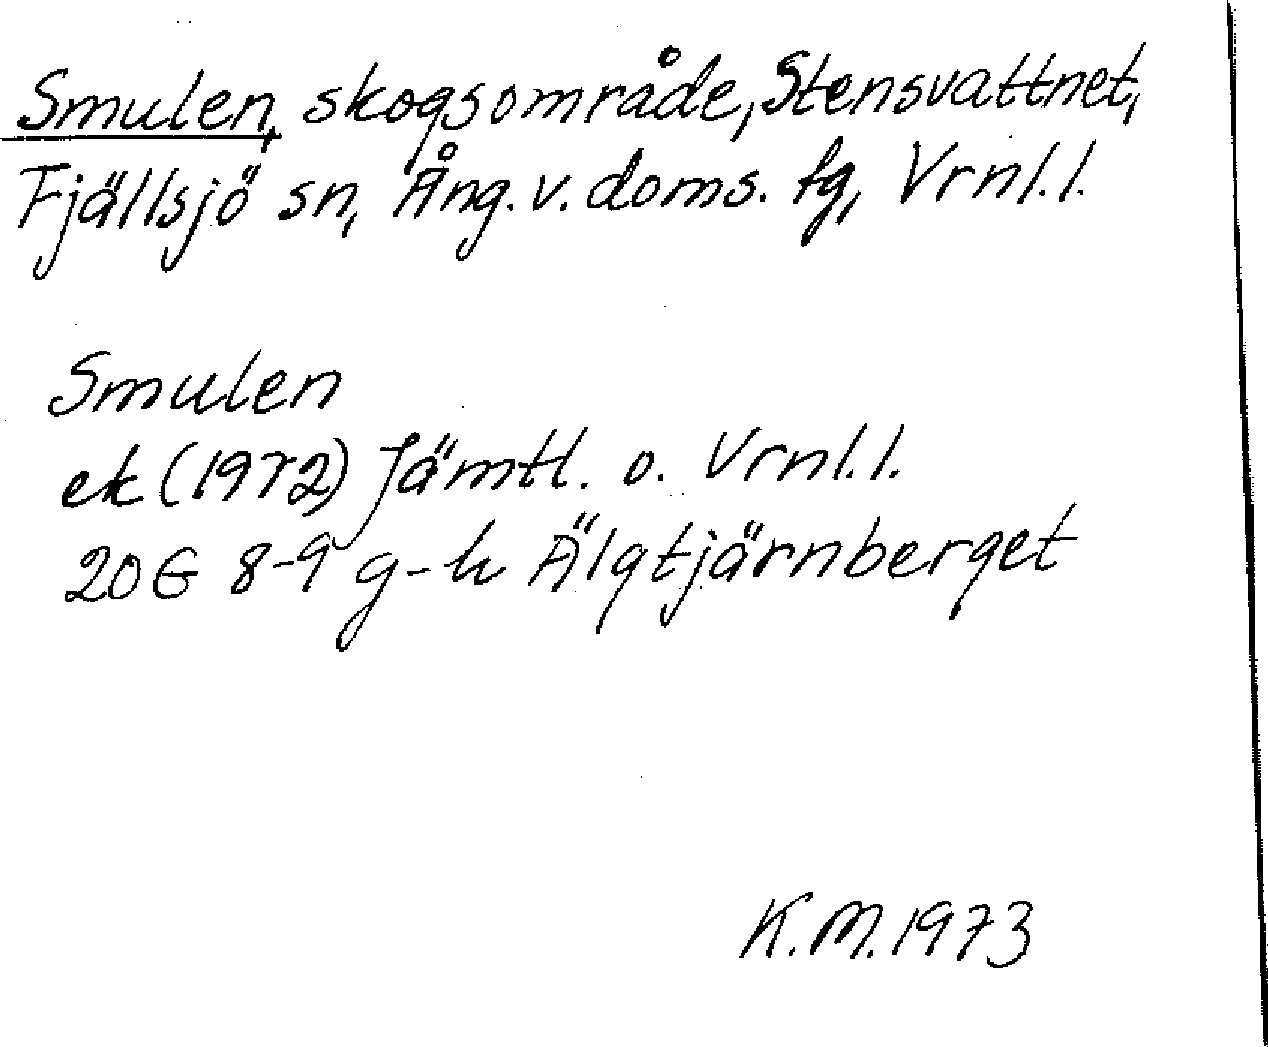 Smulen, skogsområde, Stensvattnet,
Fjällsjö sn, Ång. v. doms. fg, Vrnl. l.
Smulen
ek (1972) Jämtl. o. Vrnl. l.
20G 8-9 g-h Älgtjärnberget
K. M. 1973